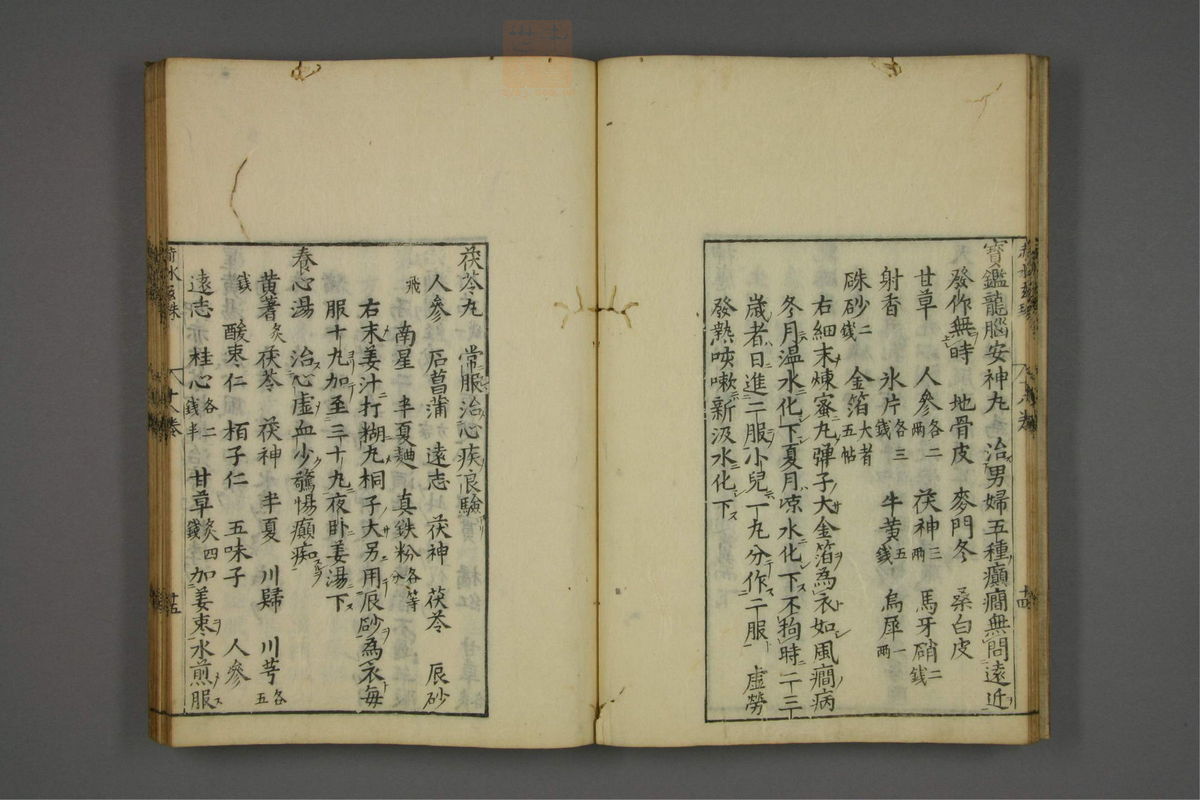 寶鑑龍腦安神丸 治男婦五種癲癇無問遠近
發作無時 地骨皮 麥門冬 桑白皮
甘草 人參各二兩 茯神三兩 馬牙硝二錢
射香 氷片各三錢 牛黃五錢 烏犀一兩
硃砂二錢 金箔大者五帖
右細末煉蜜丸彈子大金箔為衣如風癇病
冬月温水化下夏月凉水化下不狗時二十三
歲者日進二服小兒一丸分作二服 虛勞
發熱咳嗽新汲水化下
茯苓丸 常服治心疾良驗
人參 石菖蒲 遠志 茯神 茯苓 辰砂
飛 南星 半夏麯 真鉄粉各等分
右末姜汁打糊丸桐子大另用辰砂為衣每
服十丸加至三十丸夜卧姜湯下
養心湯 治心虛血少驚惕癲痴
黄蓍炙 茯苓 茯神 半夏 川歸 川芎各五
錢 酸枣仁 栢子仁 五味子 人參
遠志 桂心各二錢半 甘草炙四錢 加姜枣水煎服